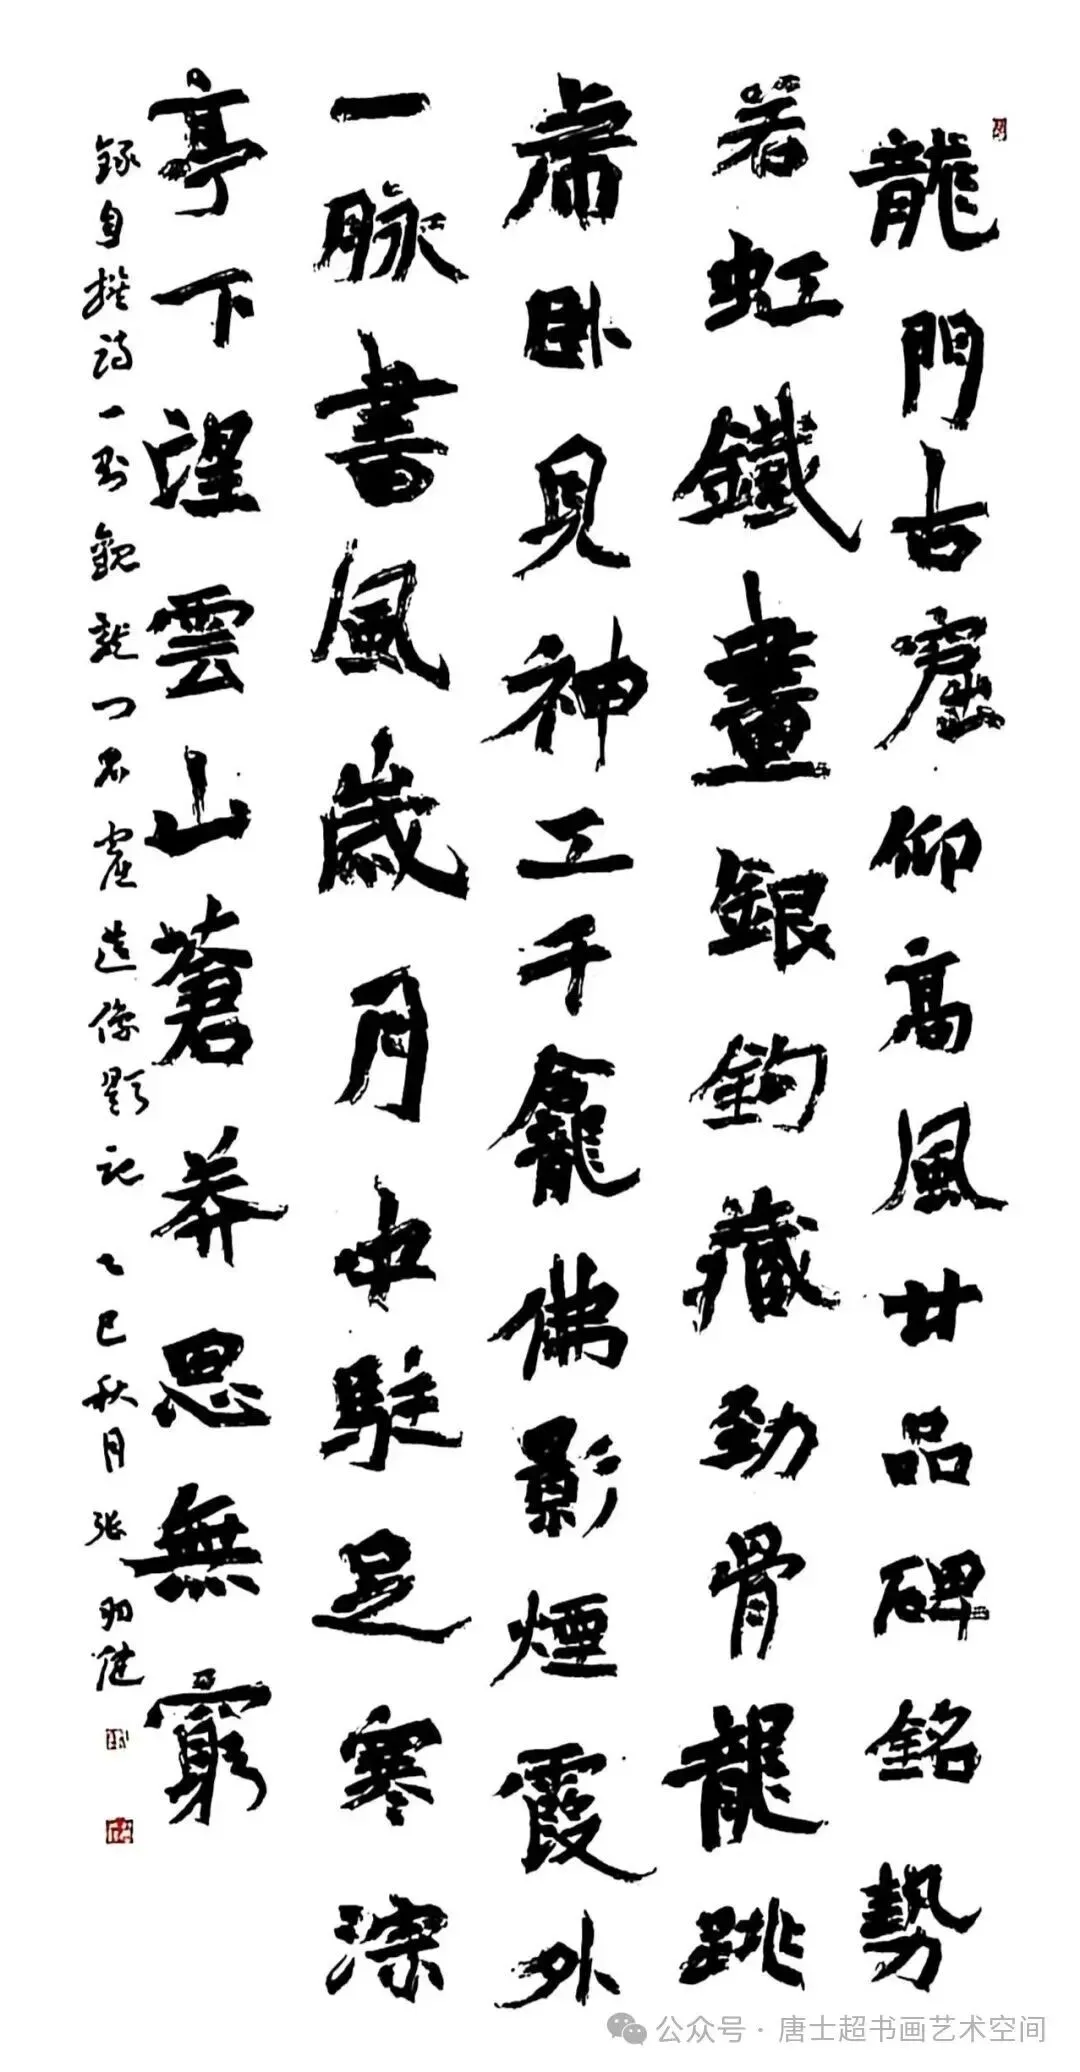 龍門古窟仰高風廿品碑銘勢
若虹鐵畫銀鈎藏勁骨龍跳
虎卧見神工千龕佛影煙霞外
一脉書風歲月中駐足寒深
亭下望雲山蒼莽思無窮
録自撰詩一則觀龍门石窟造像题记 乙巳秋月张健
公众号·唐士超书画艺术空间